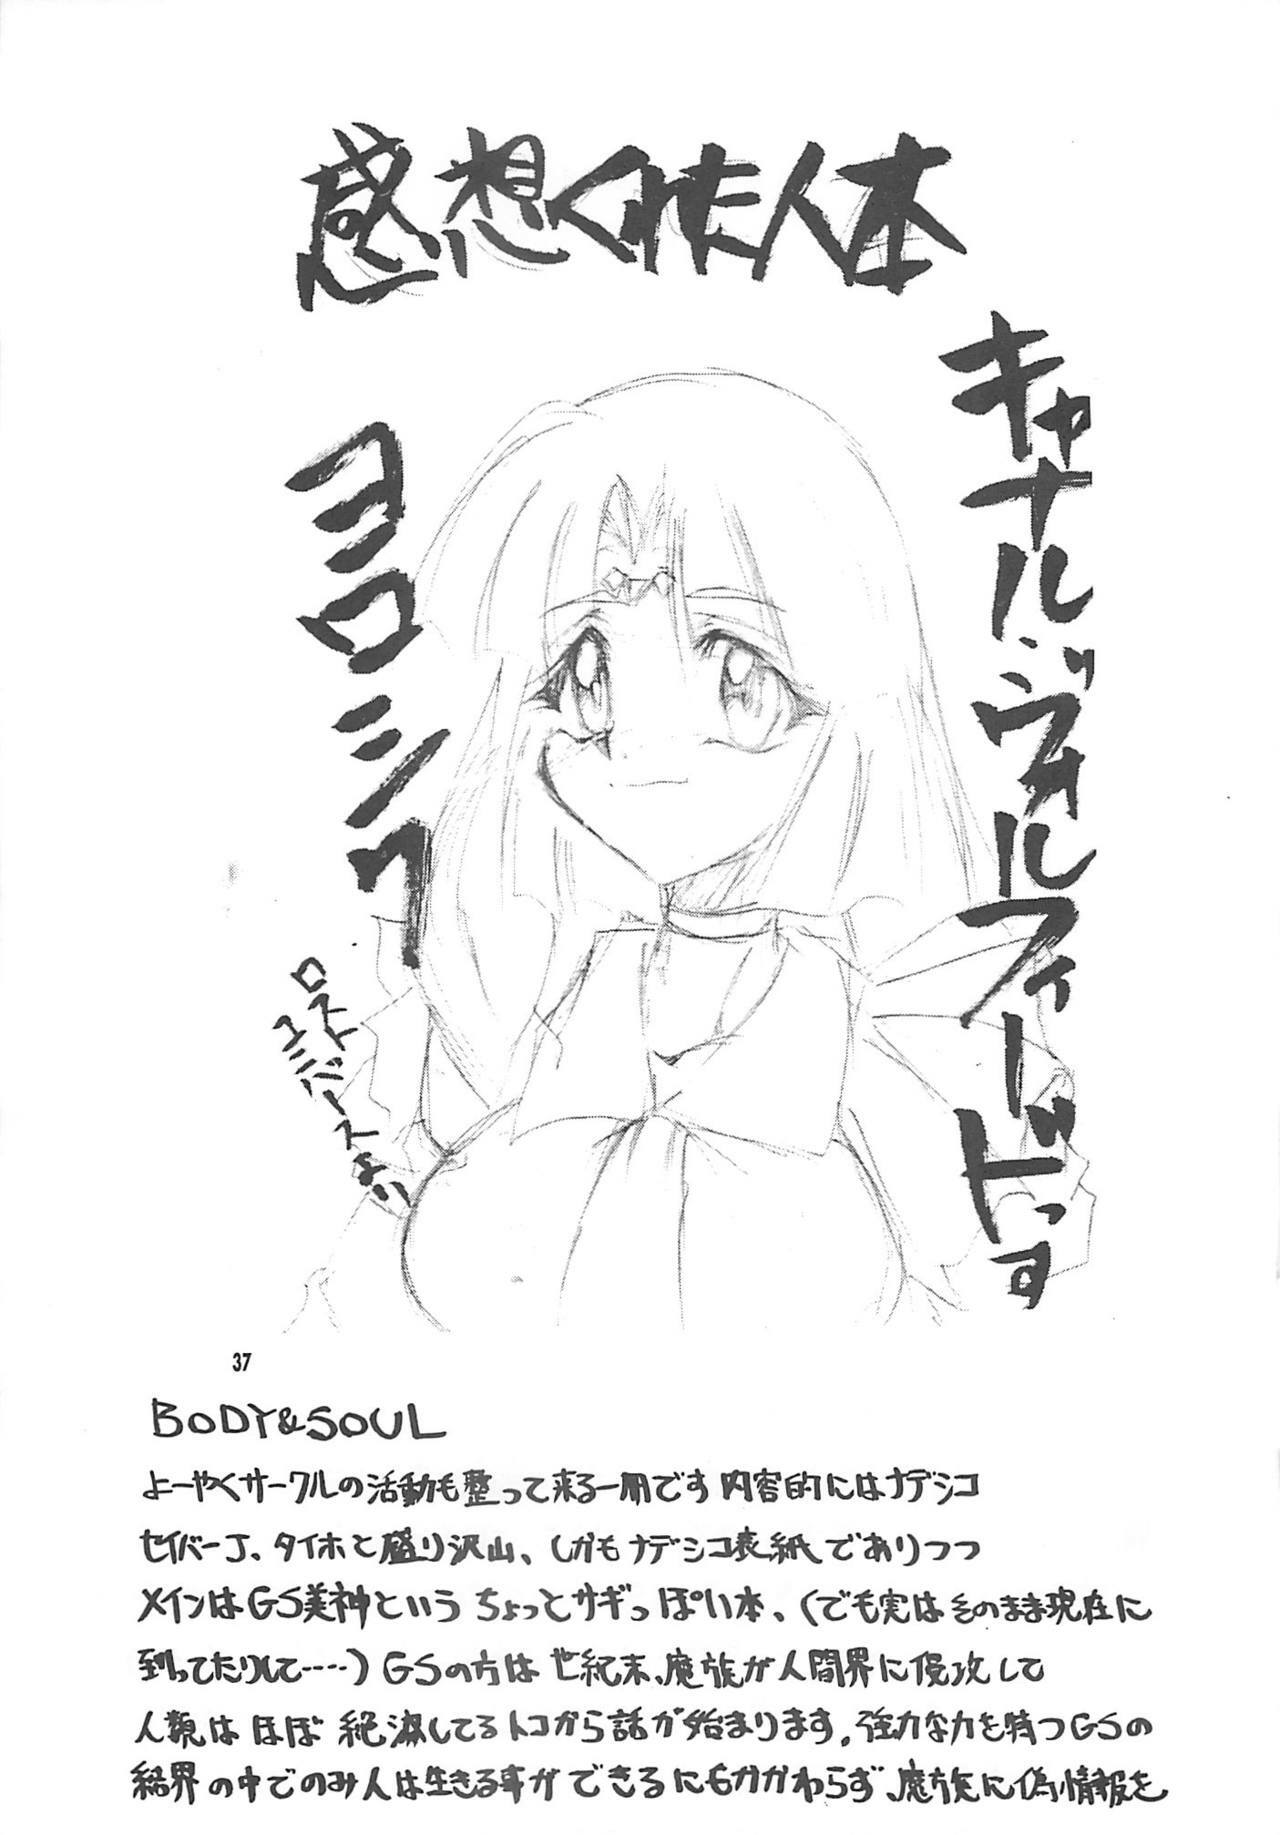 感想くれた人本
キャナル・ヴォルフィードっす
ヨロシク
ロスト
ユニバースより
37
BODY&SOUL
よーやくサークルの活動も整って来る一冊です 内容的にはナデシコ
セイバーJ、タイホと盛り沢山、しかもナデシコ表紙でありつつ
メインはGS美神という ちょっとサギっぽい本、(でも実はそのまま現在に
到ってたりして……)GSの方は 世紀末、魔族が人間界に侵攻して
人類は ほぼ 絶滅してるトコから話が始まります。強力な力を持つGSの
結界の中でのみ人は生きる事ができるにもかかわらず、魔族に偽情報を